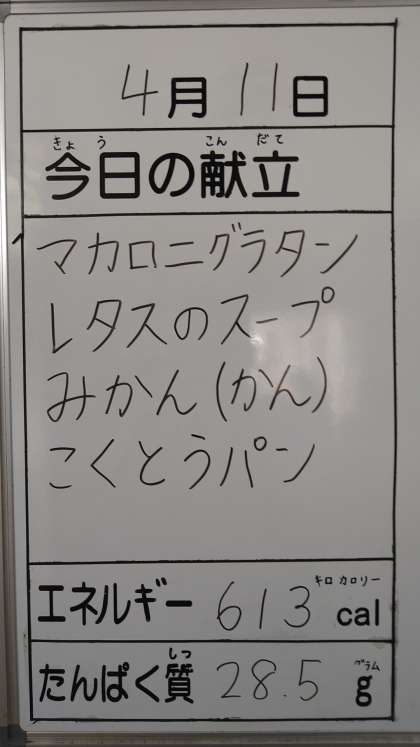 4月11日
きょう こんだて
今日の献立
マカロニグラタン
レタスのスープ
みかん(かん)
こくとうパン
キロカロリー
エネルギー 613 cal
しつ グラム
たんぱく質 28.5 g